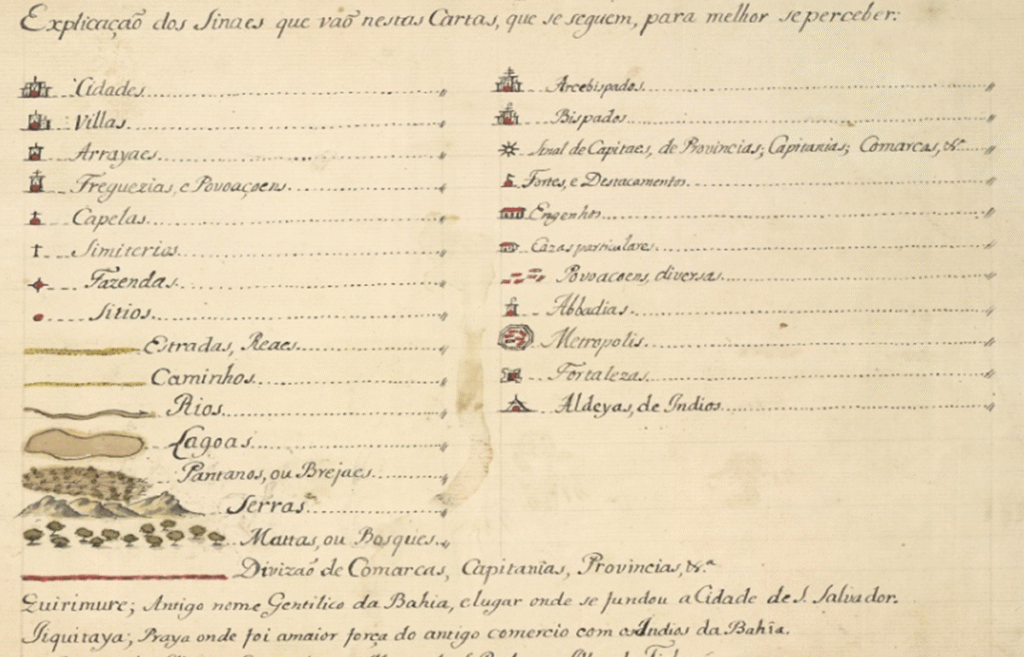 Explicação dos Sinaes que vaõ nestas Cartas, que se seguem, para melhor se perceber:
Cidades
Villas
Arrayaes
Freguezias, e Povoaçoens
Capelas
Simiterios
Fazendas
Sitios
Estradas, Reaes
Caminhos
Rios
Lagoas
Pantanos, ou Brejaes
Serras
Mattas, ou Bosques
Divizaõ de Comarcas, Capitanîas, Provincias, &ª
Arcebispados
Bispados
Sinal de Capitaes, de Provincias; Capitanias; Comarcas, &ª
Fortes, e Destacamentos
Engenhos
Cazas particulares
Povoacoens, diversas
Abbadias
Metropolis
Fortalezas
Aldeyas, de Indios
Quirimure; Antigo nome Gentilico da Bahia, e lugar onde se fundou a Cidade de S. Salvador.
Itiquitaya; Praya onde foi a maior força do antigo comercio com os Indios da Bahîa.